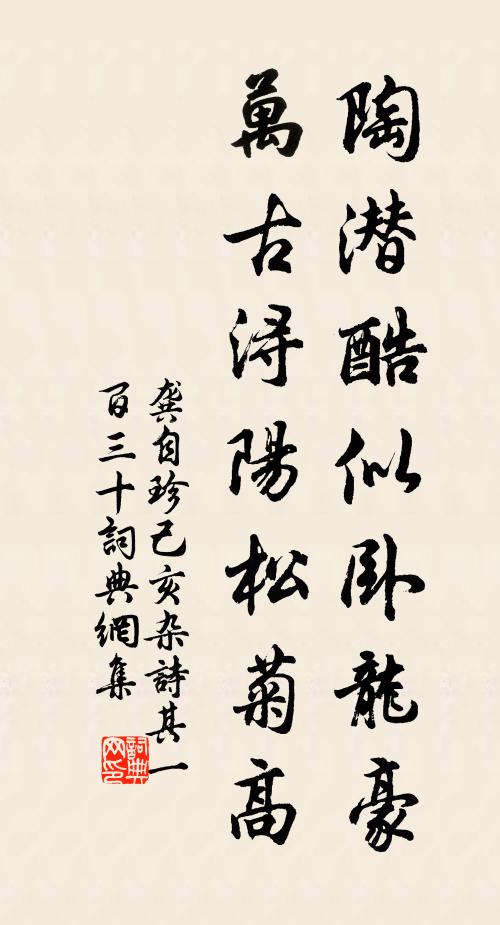 陶潜酷似卧龍豪
萬古潯陽松菊高
龔自珍己亥杂詩其一
百三十詞典網集
詞典
网印